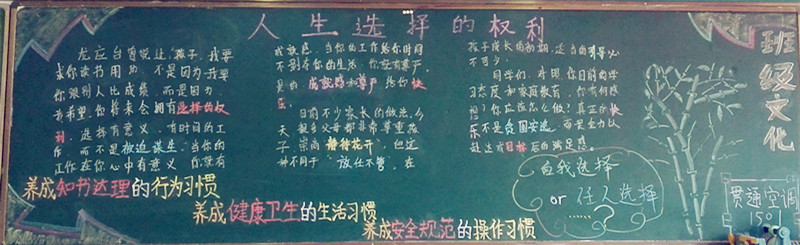 人生选择的权利
龙应台曾说过:孩子,我要
求你读书用功,不是因为我要
你跟别人比成绩,而是因为,
我希望,你将来会拥有选择的权
利,选择有意义、有时间的工
作,而不是被迫谋生。当你的
工作在你心中有意义,你就有
成就感。当你的工作给你时间
不剥夺你的生活,你就有尊严。
是的,成就感和尊严,给你快
乐。
目前不少家长的做法,么
天子崇尚"静待花开",但这
种不同于"放任不管",在
孩子成长的初期,适当的引导必
不可少。
同学们,对照你目前的学
习态度和家庭教育,你有何感
想?你应该怎么做?真正的快
乐不是贪图安逸,而是全力以
赴达成目标后的满足感。
养成知书达理的行为习惯
养成健康卫生的生活习惯
养成安全规范的操作习惯
自我选择
or 任人选择
......?
班级文化
贯通空调
1501